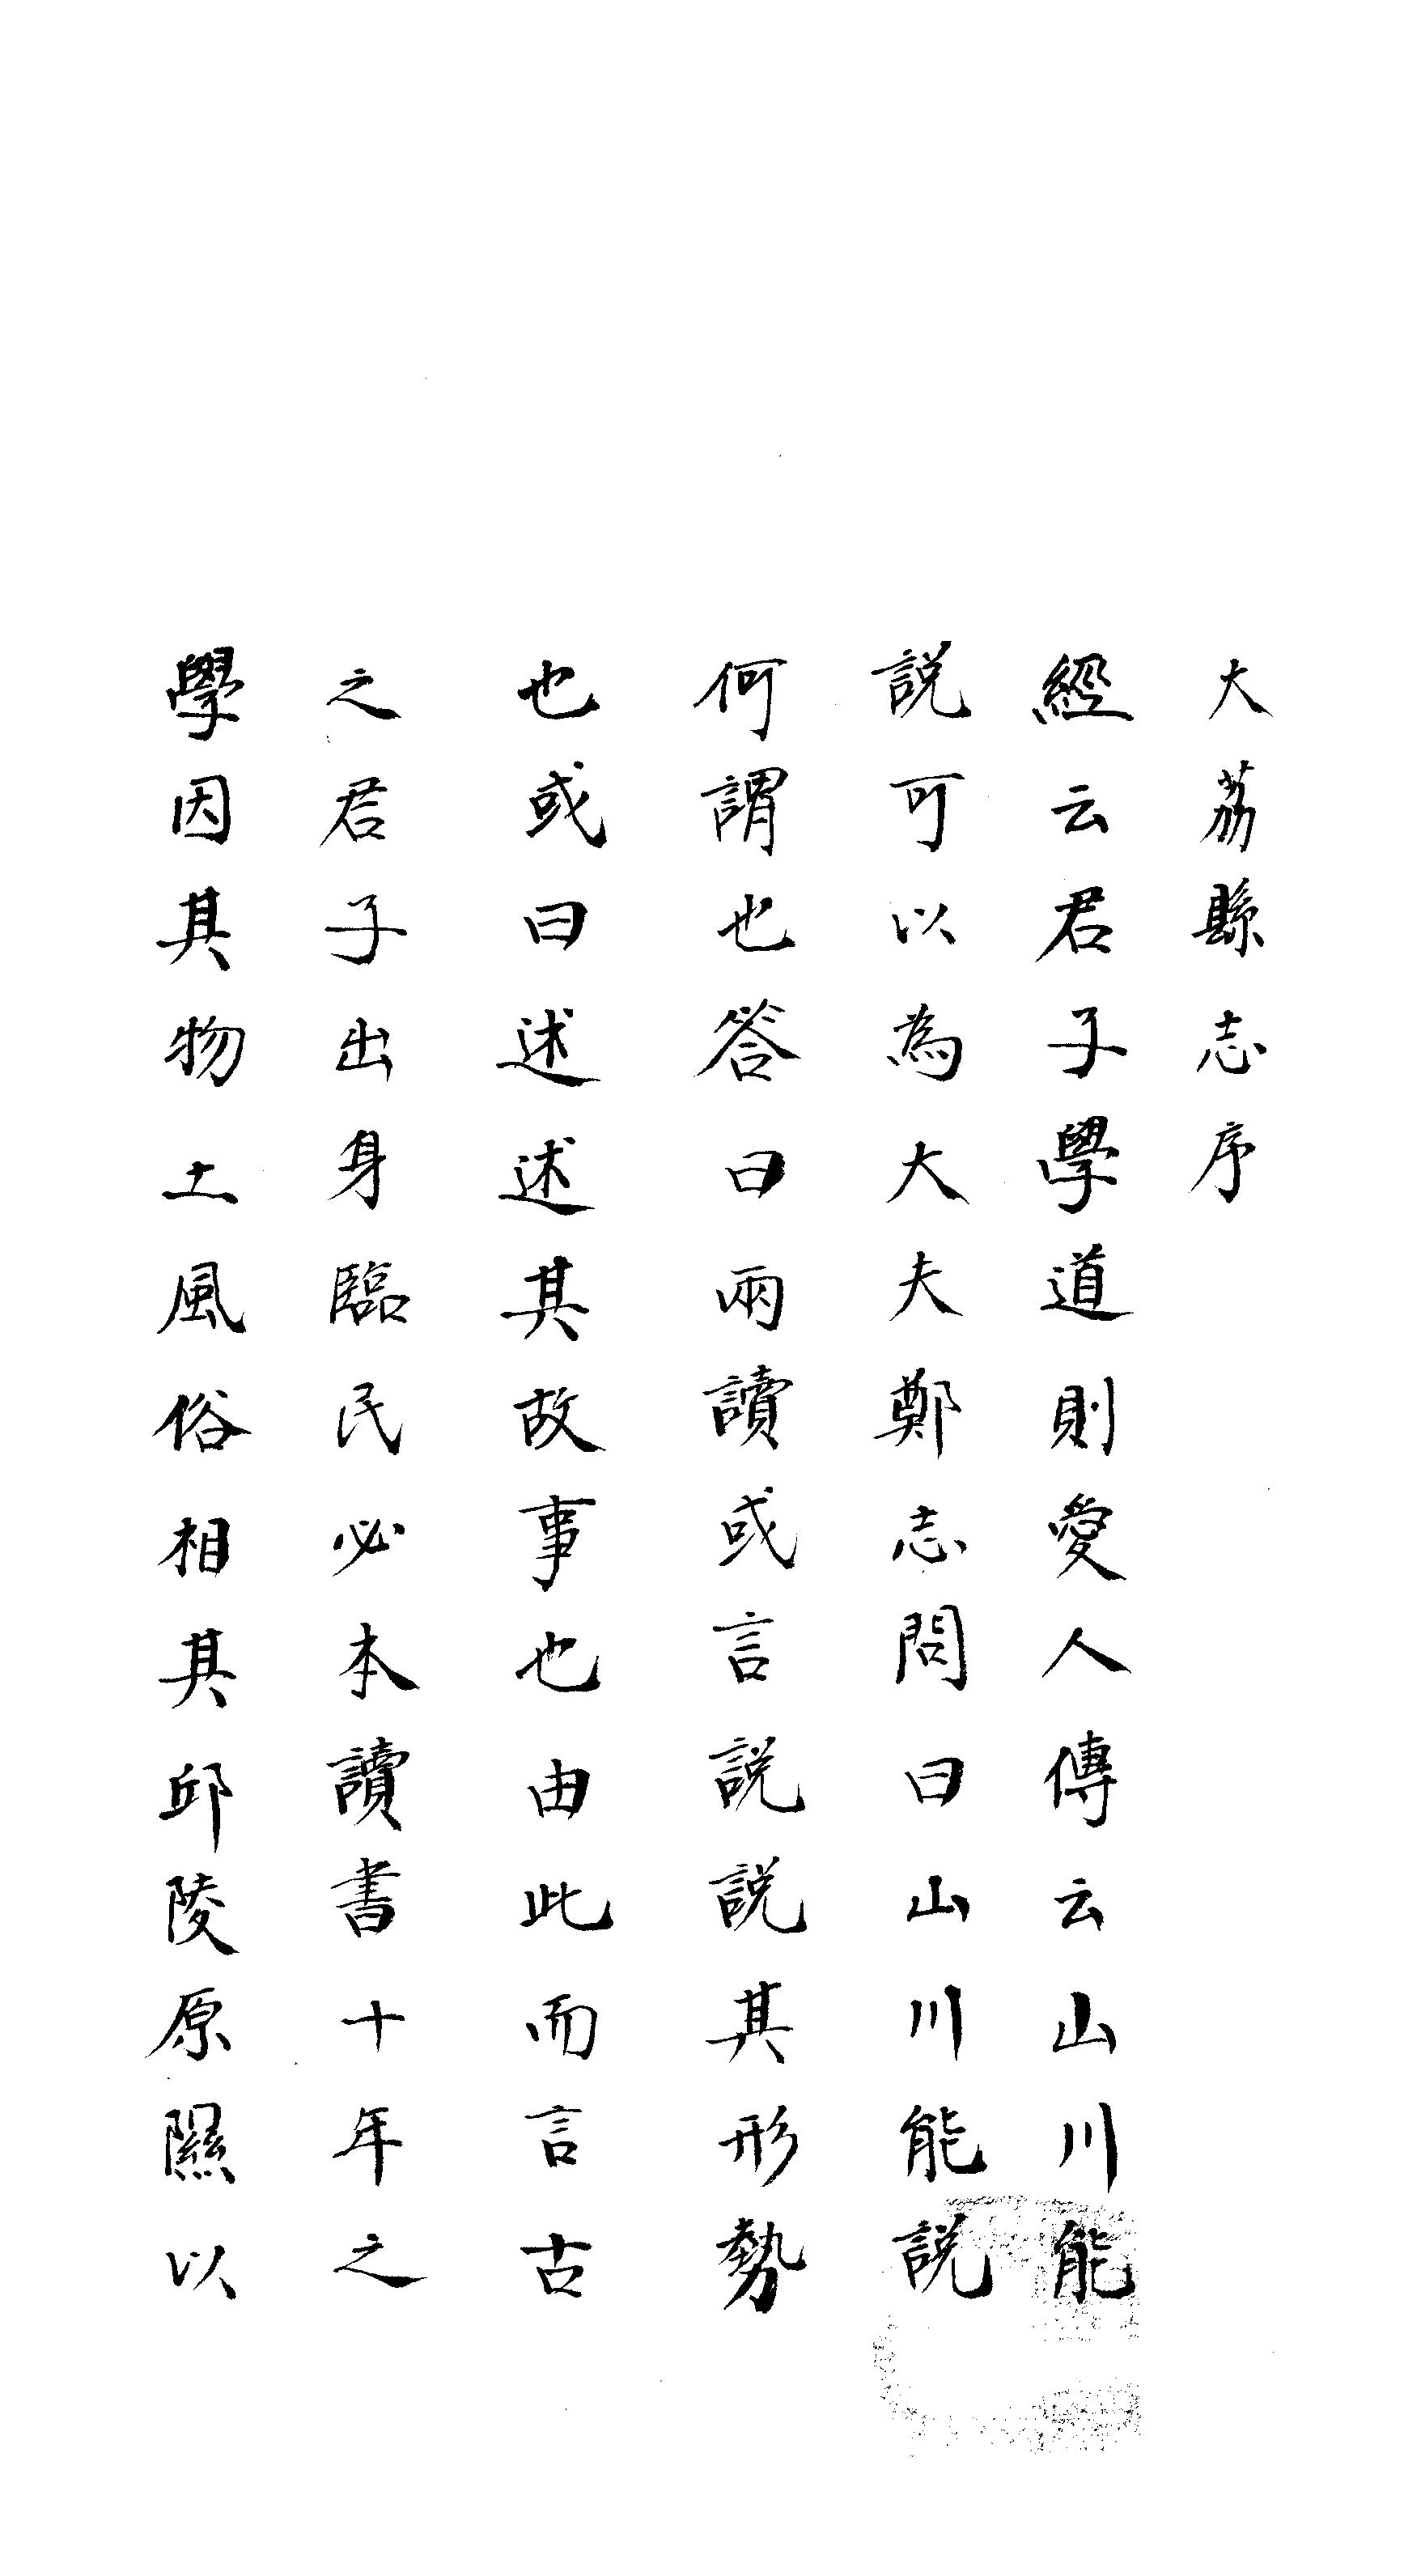 大荔縣志序
經云君子學道則愛人傳云山川能
説可以為大夫鄭志問曰山川能説
何謂也答曰兩讀或言説説其形勢
也或曰述述其故事也由此而言古
之君子出身臨民必本讀書十年之
學因其物土風俗相其邱陵原隰以